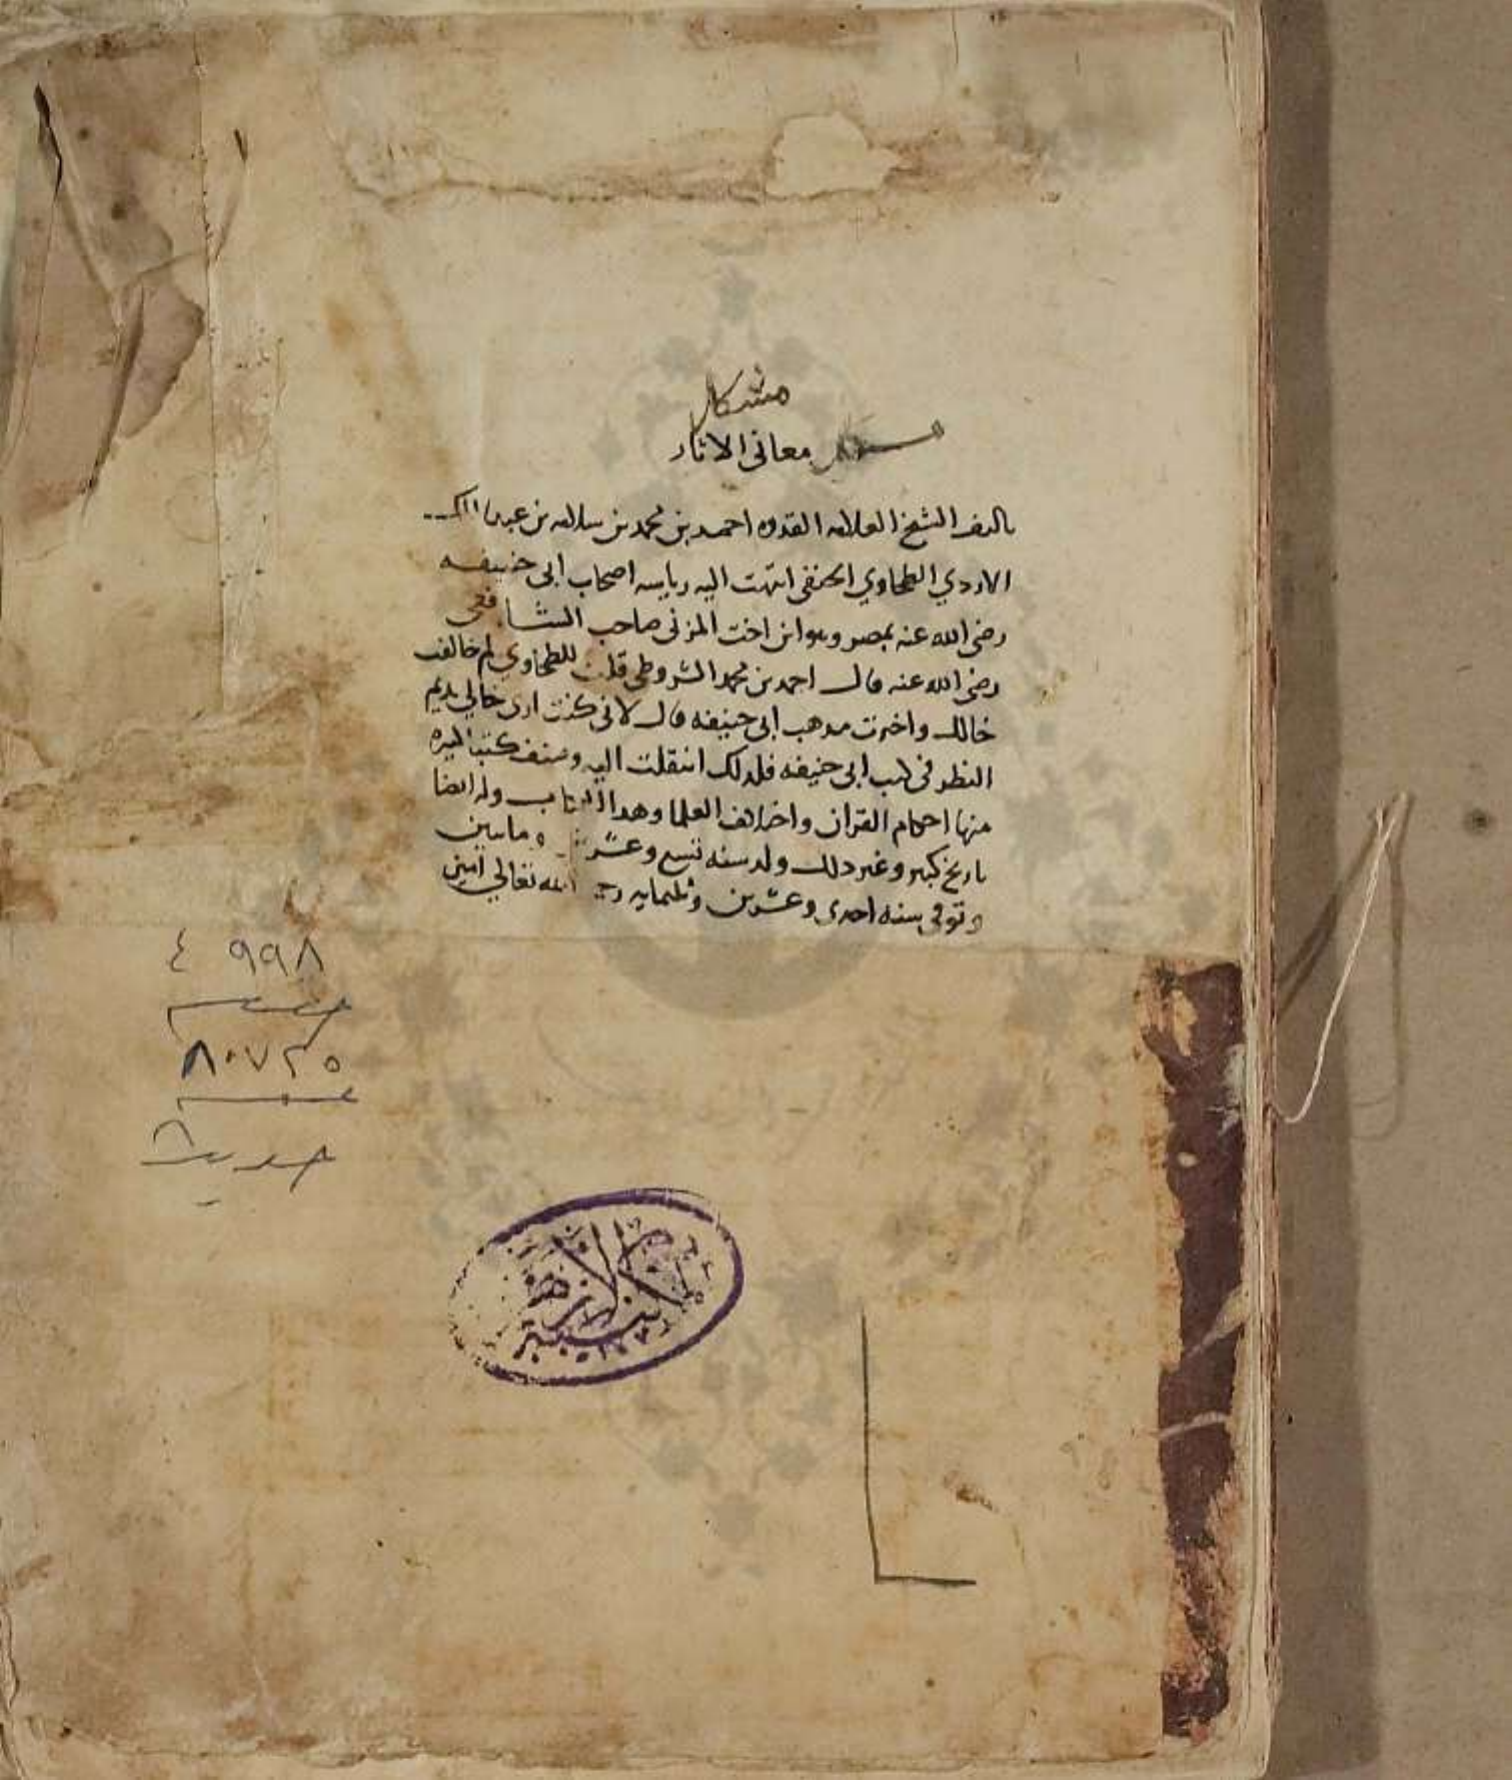 مشكل
معانى الاثار
تاليف الشيخ العلامه القدوه احمد بن محمد بن سلامه بن عبد الملك
الازدي الطحاوي الحنفى انتهت اليه رياسه اصحاب ابى حنيفه
رضى الله عنه بمصر وهو ابن اخت المزنى صاحب الشافعى
رضى الله عنه قال احمد بن محمد الشروطى قلت للطحاوي لم خالفت
خالك واخترت مذهب ابى حنيفه قال لانى كنت ارى خالي يديم
النظر فى كتب ابى حنيفه فلذلك انتقلت اليه وصنف كتبا كثيره
منها احكام القران واختلاف العلما وهذا الكتاب وله ايضا
تاريخ كبير وغير ذلك ولد سنه تسع وعشرين ومايتين
وتوفى سنه احدى وعشرين وثلثمايه رحمه الله تعالى امين
٩٩٨ ٤
٨٠٧٢٥
حديث